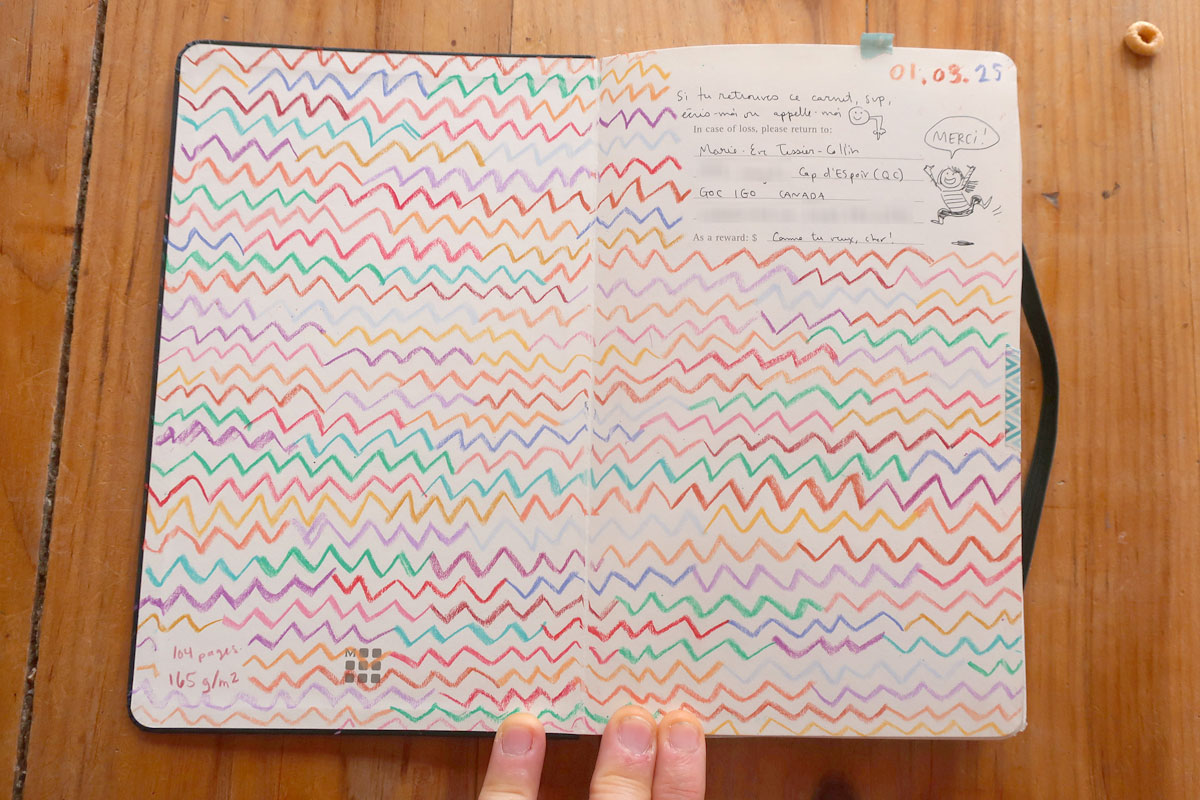 01.03.25
Si tu retrouves ce carnet, svp,
écris-moi ou appelle-moi
In case of loss, please return to:
MERCI!
Marie-Eve Tessier-Collin
Cap d'Espoir (QC)
G0C 1G0 CANADA
As a reward: $ Comme tu veux, cher!
104 pages
165 g/m²
M